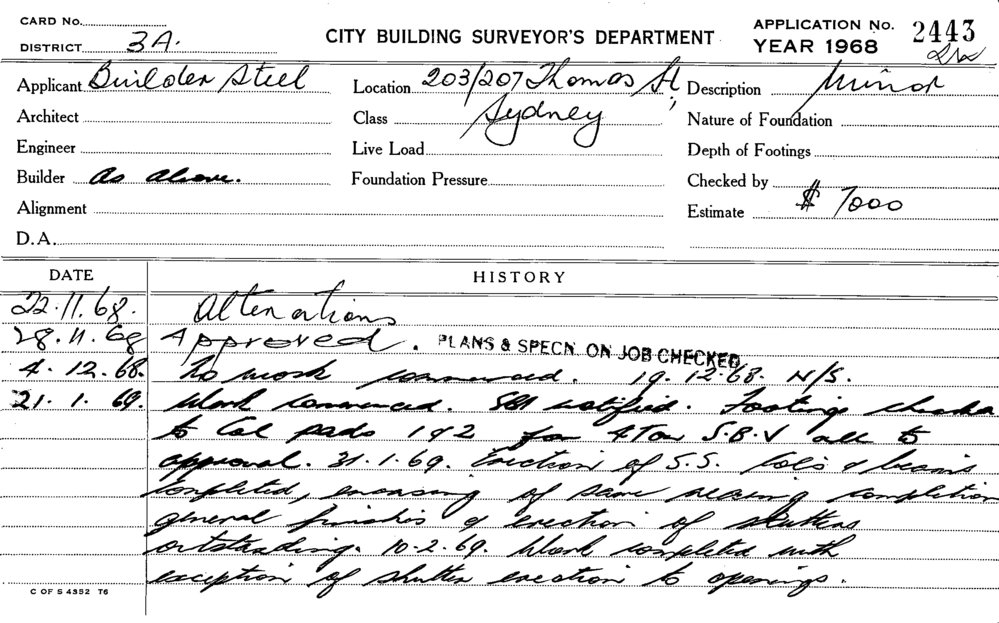 CARD No.
DISTRICT 3A.
CITY BUILDING SURVEYOR'S DEPARTMENT
APPLICATION No. 2443
YEAR 1968
Applicant Builder Steel
Location 203/207 Thomas St,
Description Minor
Architect
Class Sydney
Nature of Foundation
Engineer
Live Load
Depth of Footings
Builder As above.
Foundation Pressure
Checked by
Alignment
Estimate $ 7000
D.A.
DATE HISTORY
22.11.68. Alterations
28.11.68 Approved. PLANS & SPECN. ON JOB CHECKED
4.12.68. No work commenced. 19.12.68. N/S.
21.1.69. Work commenced. notified. Footings checked
to Col pads 1 & 2 for 4 Ton S.B.V all to
approval. 31.1.69. Erection of S.S. Cols & beams
completed, encasing of same nearing completion
general finishes & erection of shutters
outstanding. 10.2.69. Work completed with
exception of shutter erection to openings.
C OF S 4352 T6